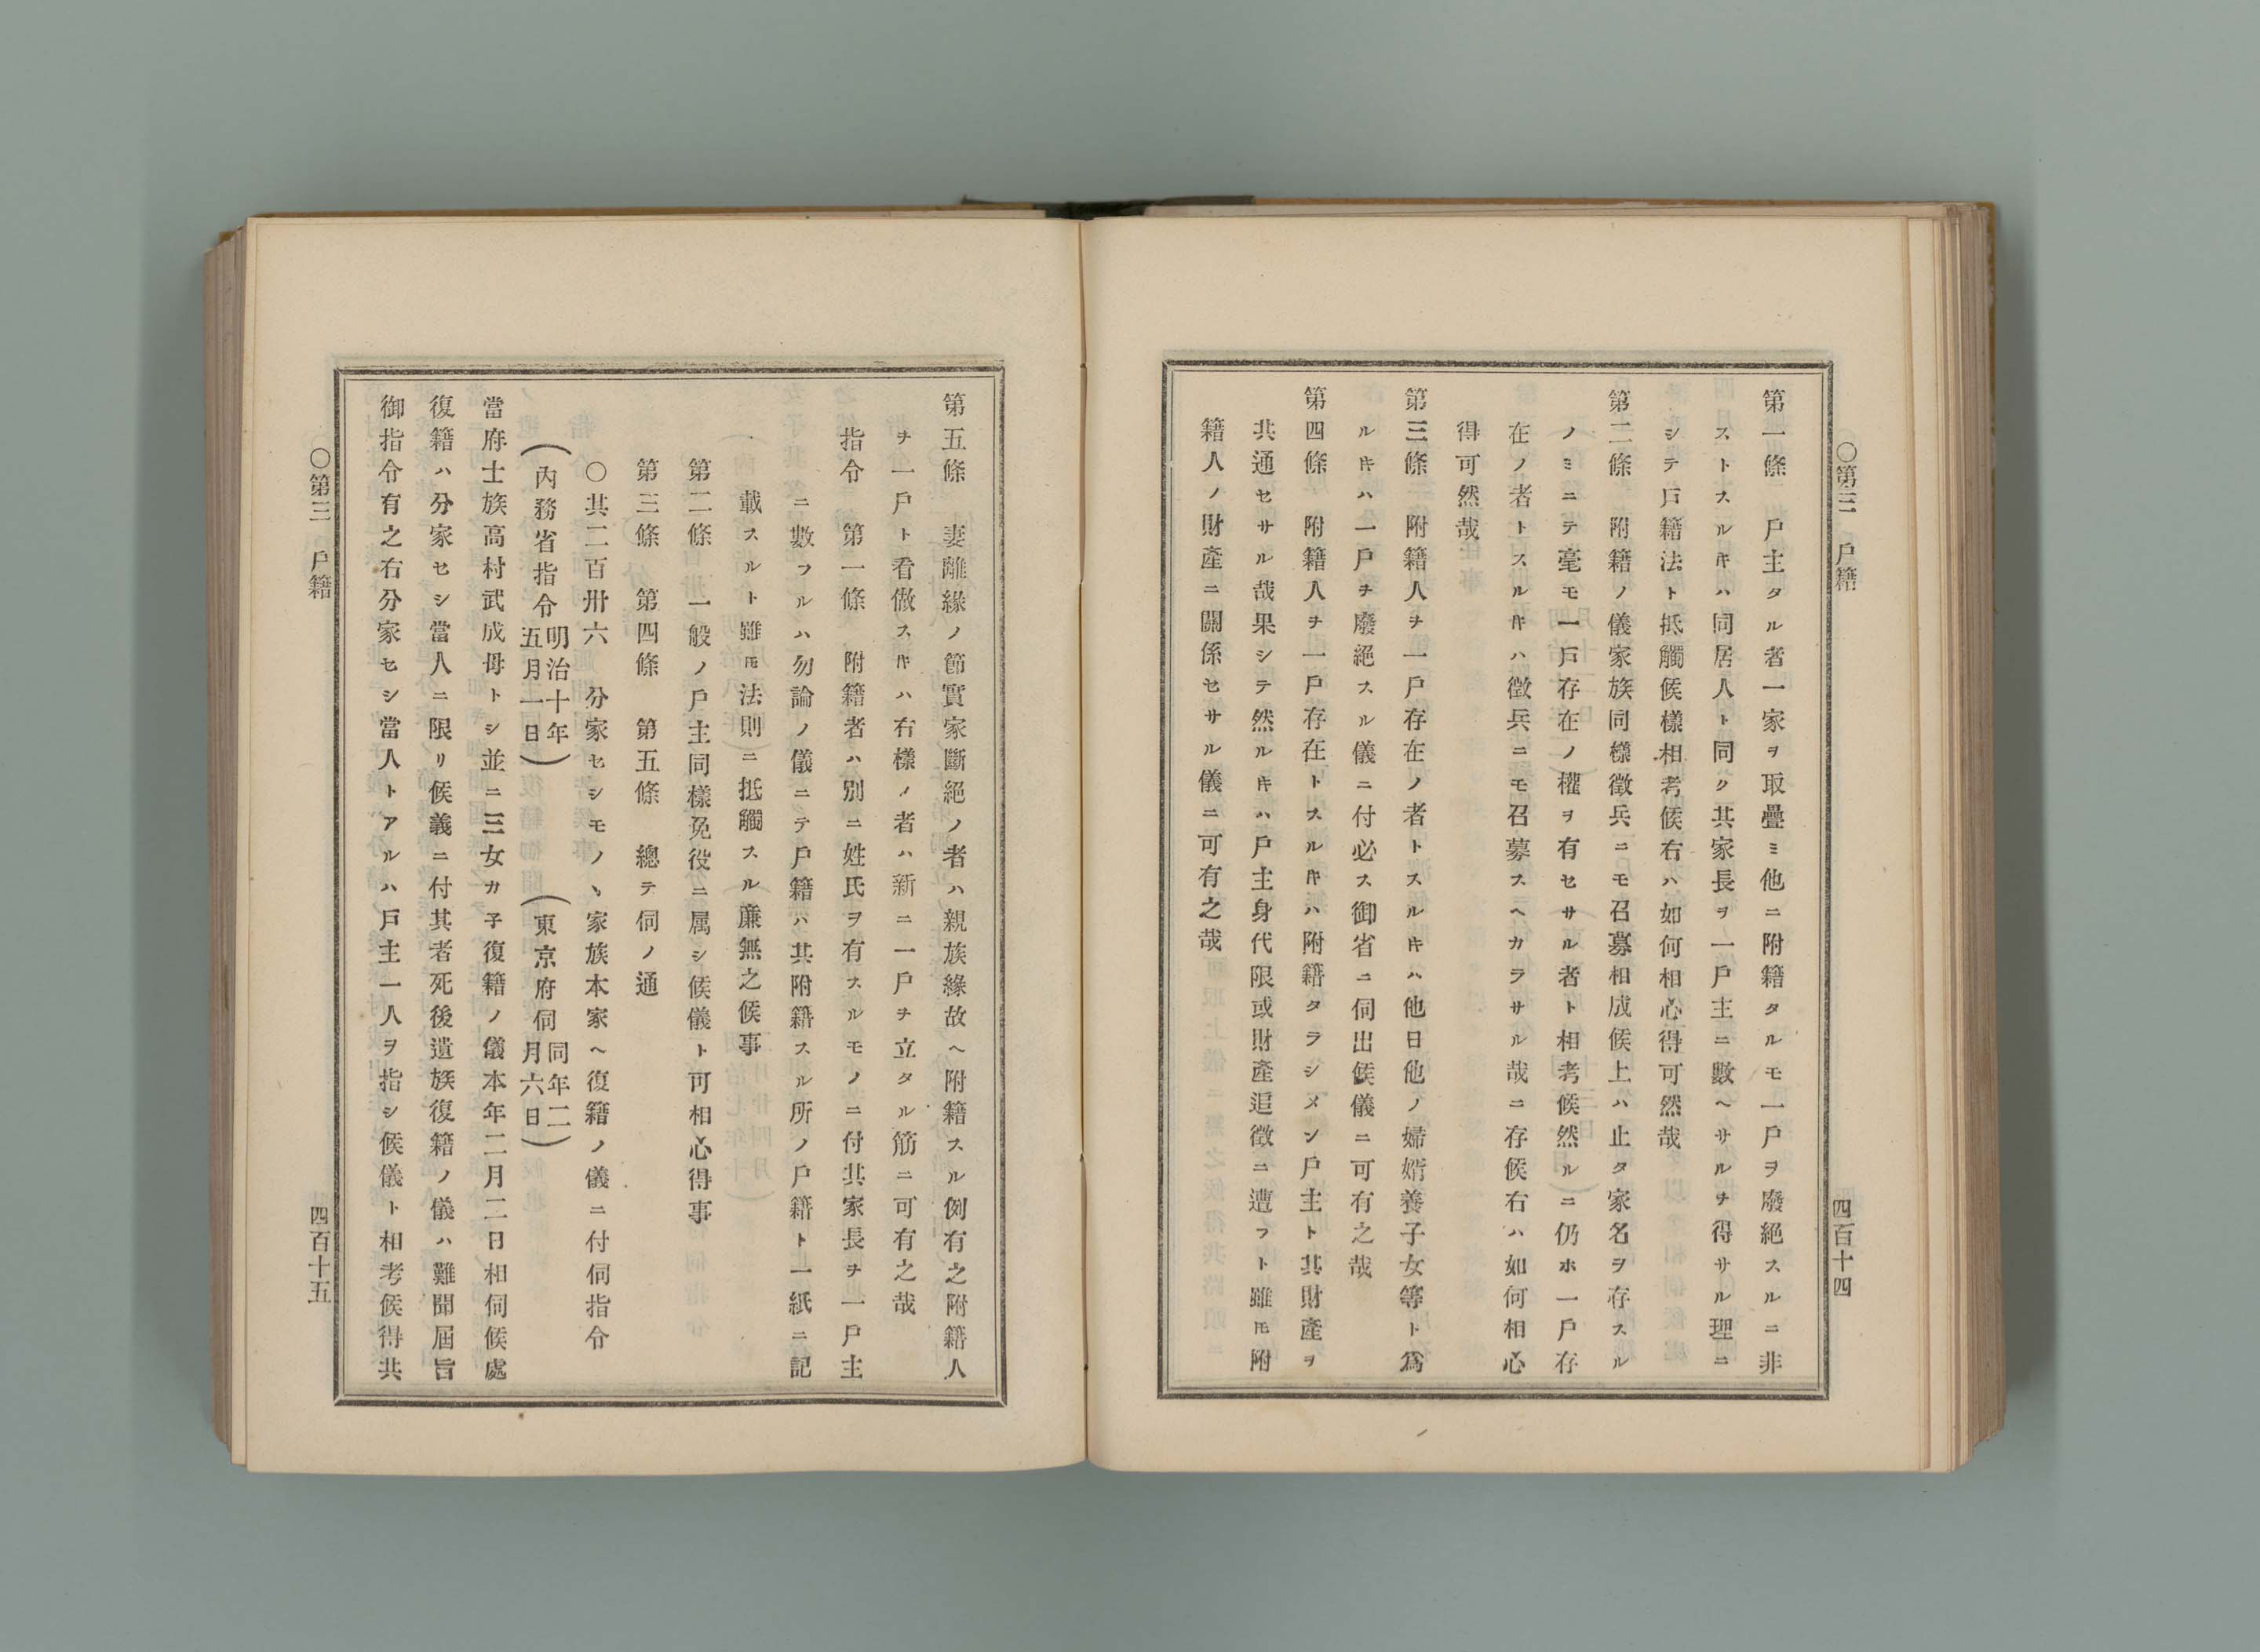 ○第三　戶籍
四百十四
第一條　戶主タル者一家ヲ取疊ミ他ニ附籍タルモ一戶ヲ廢絕スルニ非
ストスルキハ同居人ト同ク其家長ヲ一戶主ニ數ヘサルヲ得サル理ニ
シテ戶籍法ト抵觸候樣相考候右ハ如何相心得可然哉
第二條　附籍ノ儀家族同樣徵兵ニモ召募相成候上ハ止タ家名ヲ存スル
ノミニテ毫モ一戶存在ノ權ヲ有セサル者ト相考候然ルニ仍ホ一戶存
在ノ者トスルキハ徵兵ニモ召募スヘカラサル哉ニ存候右ハ如何相心
得可然哉
第三條　附籍人ヲ一戶存在ノ者トスルキハ他日他ノ婦婿養子女等ト爲
ルキハ一戶ヲ廢絕スル儀ニ付必ス御省ニ伺出候儀ニ可有之哉
第四條　附籍人ヲ一戶存在トスルキハ附籍タラシメン戶主ト其財產ヲ
共通セサル哉果シテ然ルキハ戶主身代限或財產追徵ニ遭フト雖𪜈附
籍人ノ財產ニ關係セサル儀ニ可有之哉
第五條　妻離緣ノ節實家斷絕ノ者ハ親族緣故ヘ附籍スル例有之附籍人
ヲ一戶ト看做スキハ右樣ノ者ハ新ニ一戶ヲ立タル筋ニ可有之哉
指令　第一條　附籍者ハ別ニ姓氏ヲ有スルモノニ付其家長ヲ一戶主
ニ數フルハ勿論ノ儀ニテ戶籍ハ其附籍スル所ノ戶籍ト一紙ニ記
載スルト雖𪜈法則ニ抵觸スル廉無之候事
第二條　一般ノ戶主同樣免役ニ属シ候儀ト可相心得事
第三條　第四條　第五條　總テ伺ノ通
○其二百卅六　分家セシモノヽ家族本家ヘ復籍ノ儀ニ付伺指令
（內務省指令明治十年五月一日）　（東京府伺同年二月六日）
當府士族高村武成母トシ並ニ三女カ子復籍ノ儀本年二月二日相伺候處
復籍ハ分家セシ當人ニ限リ候義ニ付其者死後遺族復籍ノ儀ハ難聞屆旨
御指令有之右分家セシ當人トアルハ戶主一人ヲ指シ候儀ト相考候得共
○第三　戶籍
四百十五